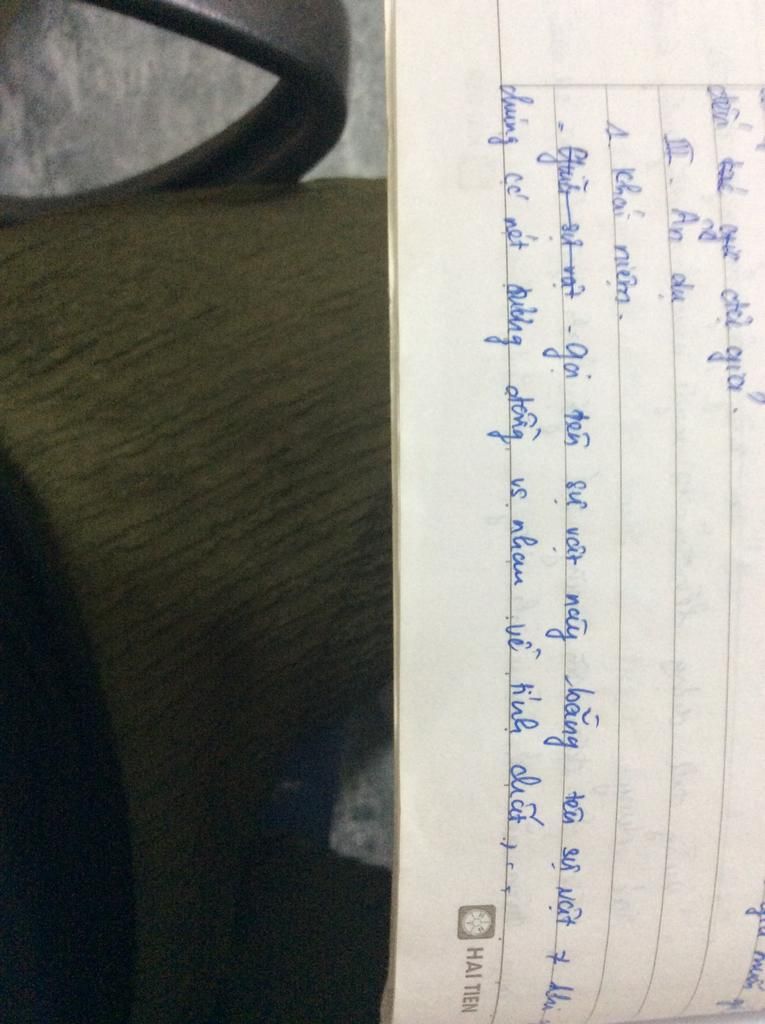 đến thế giới độc giả.
III. Ẩn dụ
1. Khái niệm.
- Giữa sự vật - Gọi tên sự vật này bằng tên sự vật ≠ khi
chúng có nét tương đồng vs nhau về tính chất, ...
HAI TIEN